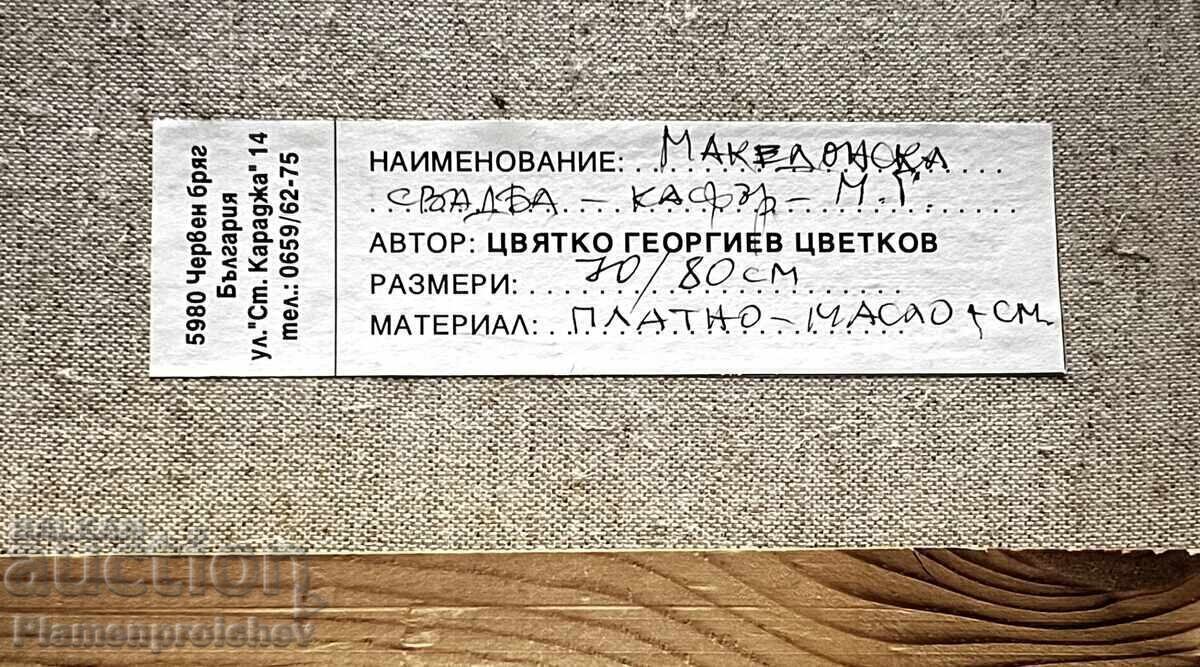 5980 Червен бряг
България
ул."Ст. Караджа" 14
тел.: 0659/62-75
НАИМЕНОВАНИЕ: МАКЕДОНСКА
СВАДБА – КАФЪР – М.Г.
АВТОР: ЦВЯТКО ГЕОРГИЕВ ЦВЕТКОВ
РАЗМЕРИ: 70/80 см
МАТЕРИАЛ: ПЛАТНО – МАСЛО,
BALKAN
auction
Plamenproichev